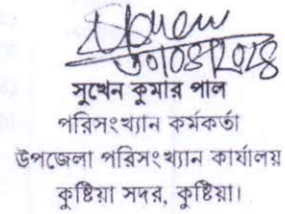 30/08/2028
সুখেন কুমার পাল
পরিসংখ্যান কর্মকর্তা
উপজেলা পরিসংখ্যান কার্যালয়
কুষ্টিয়া সদর, কুষ্টিয়া।